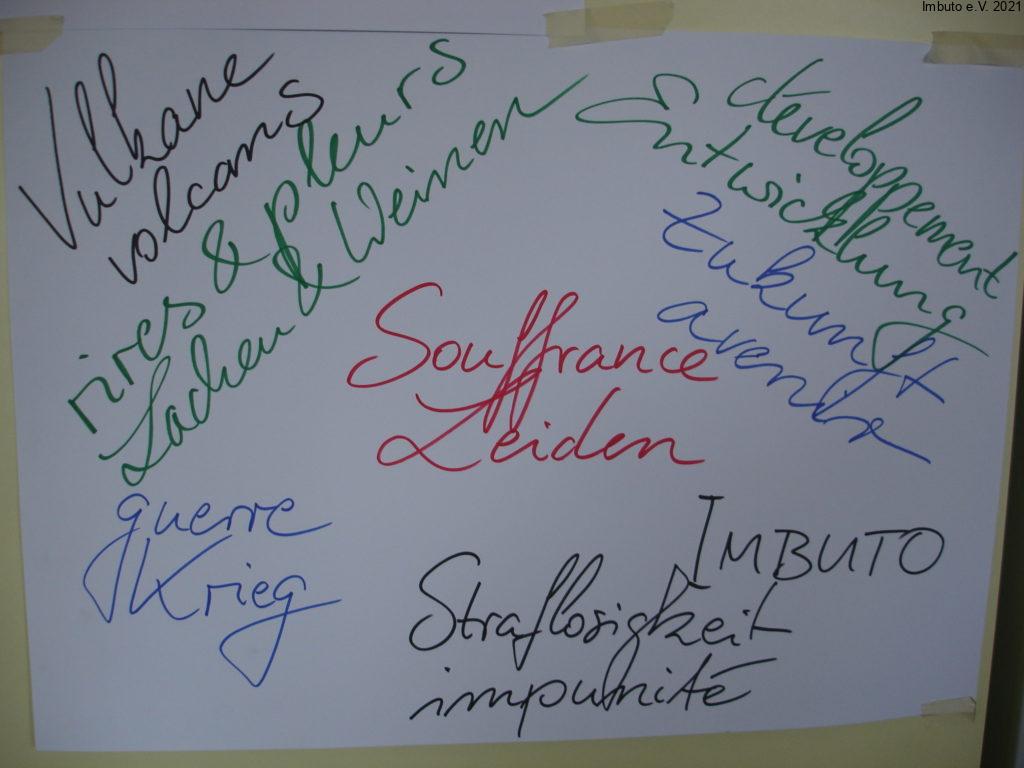 Imbuto e.V. 2021
Vulkane
volcans
rires & pleurs
Lachen & Weinen
développement
Entwicklung
Zukunft
avenir
Souffrance
Leiden
guerre
Krieg
IMBUTO
Straflosigkeit
impunité